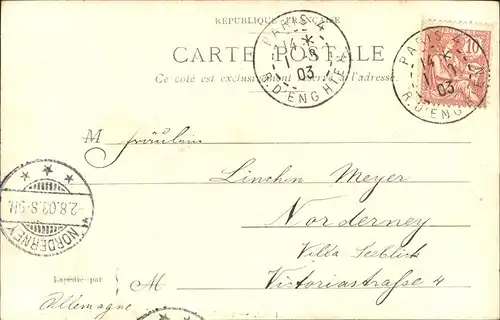 RÉPUBLIQUE FRANÇAISE
CARTE POSTALE
Ce coté est exclusivement réservé à l'adresse.
PARIS 4
14 *
1 8
03
R. D'ENGHIEN
PARIS
14 *
1
03
R. D'ENGHIEN
10
M Fräulein
Linchen Meyer
Norderney
Villa Seeblick
Victoriastraße 4
Expédié par
M
Allemagne
NORDERNEY
-2.8.03.8-9N.